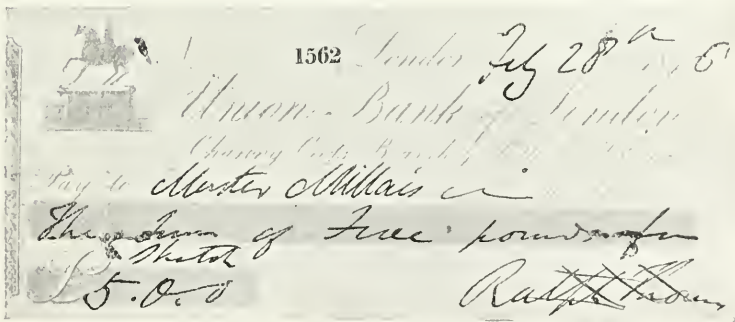 1562 London Feby 28th
Union Bank London
Charing Cross Branch
Pay to Master Millais
The Sum of Five pounds for
Sketch
£5.0.0 Ralph Thomas